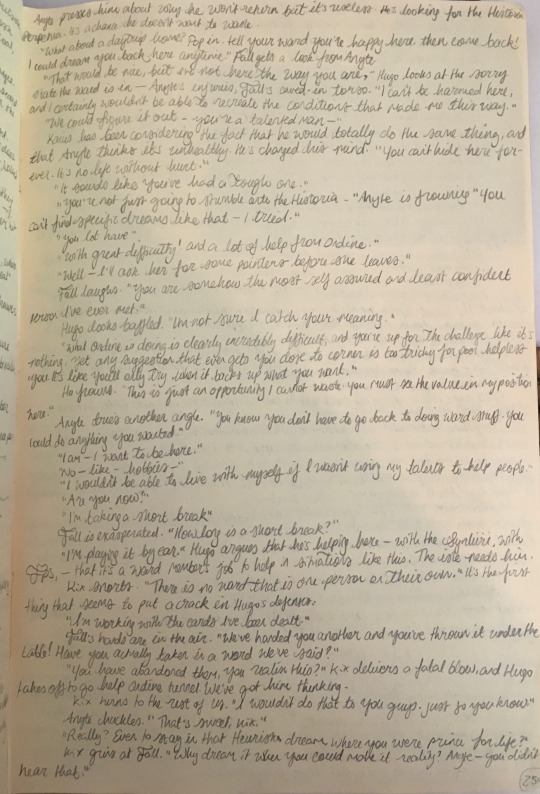 Anyte presses him about why he won't return but it's useless. He's looking for the Historia
Perpetua. It's a chance he doesn't want to waste.
"What about a daytrip home? Pop in, tell your ward you're happy here, then come back!
I could dream you back here anytime." Fall gets a look from Anyte.
"That would be nice, but I'm not here the way you are," Hugo looks at the sorry
state the ward is in - Anyte's injuries, Fall's caved-in torso. "I can't be harmed here,
and I certainly wouldn't be able to recreate the conditions that made me this way."
"We could figure it out - you're a talented man -"
has been considering the fact that he would totally do the same thing, and
that Anyte thinks it's unhealthy. He's changed his mind. "You can't hide here for-
ever. It's no life without hurt."
"It sounds like you've had a rough one."
"You're not just going to stumble onto the Historia - "Anyte is frowning" You
can't find specific dreams like that - I tried."
"You lot have"
"With great difficulty! and a lot of help from Ordine."
"Well - I'll ask her for some pointers before she leaves."
Fall laughs. "You are somehow the most self assured and least confident
person I've ever met."
Hugo looks baffled. "I'm not sure I catch your meaning."
"What Ordine is doing is clearly incredibly difficult, and you're up for the challenge like it's
nothing. Yet any suggestion that ever gets you close to corner is too tricky for poor helpless
you. It's like you'll only try when it backs up what you want."
He frowns. "This is just an opportunity I cannot waste. You must see the value in my position
here."
Anyte tries another angle. "You know you don't have to go back to doing ward stuff. You
could do anything you wanted"
"I am - I want to be here."
"No - like - hobbies -"
"I wouldn't be able to live with myself if I wasn't using my talents to help people."
"Are you now?"
"I'm taking a short break"
Fall is exasperated. "How long is a short break?"
"I'm playing it by ear." Hugo argues that he's helping here - with the with
- that it's a ward member's job to help in situations like this. The isle needs him.
Kix snorts. "There is no ward that is one person on their own." It's the first
thing that seems to put a crack in Hugo's defenses.
"I'm working with the cards I've been dealt."
Fall's hands are in the air. "We've handed you another and you've thrown it under the
table! Have you actually taken in a word we've said?"
"You have abandoned them, you realise this?" Kix delivers a fatal blow, and Hugo
takes off to go help Ordine tunnel. We've got him thinking.
Kix turns to the rest of us. "I wouldn't do that to you guys. Just so you know."
Anyte chuckles. "That's sweet, Kix."
"Really? Even to stay in that dream where you were prince for life?"
Kix grins at Fall. "Why dream it when you could make it reality? Anyte - you didn't
hear that."